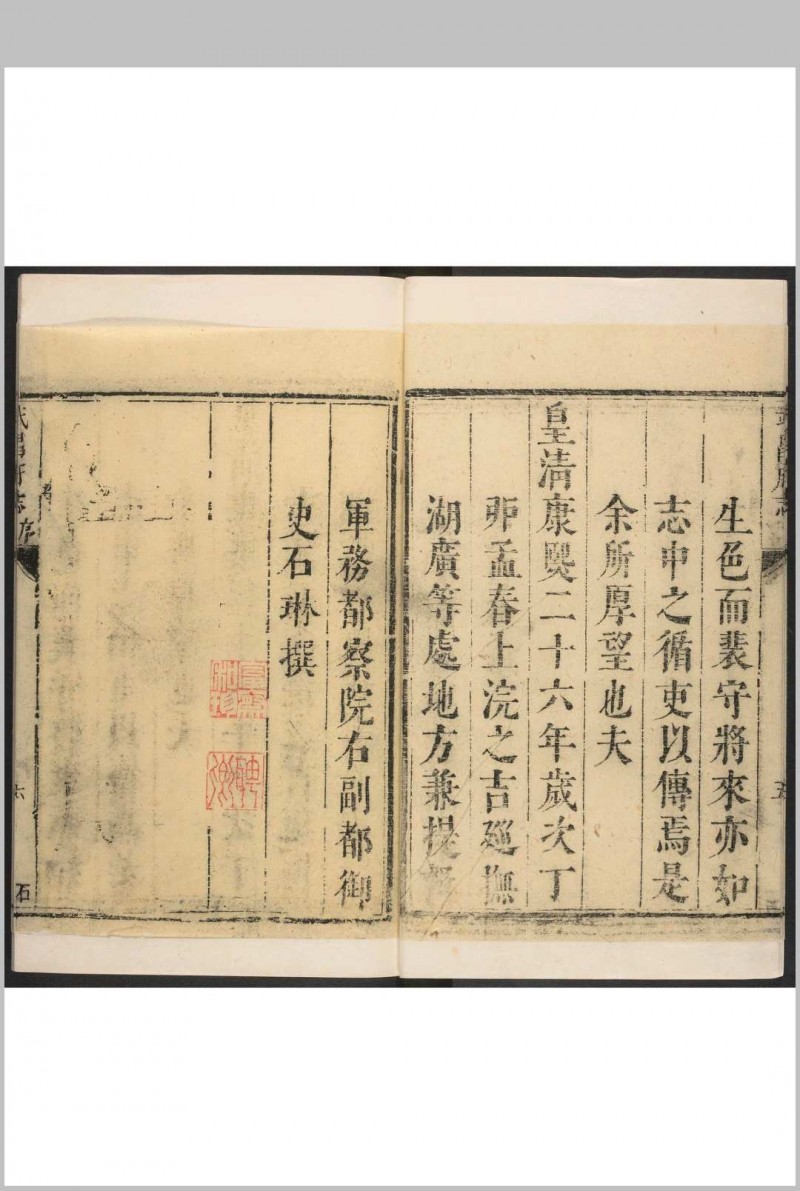 武昌府志
五
生色而裴守將來亦如
志中之循吏以傳焉是
余所厚望也夫
皇清康熙二十六年歲次丁
卯孟春上浣之吉廵撫
湖廣等處地方兼提督
軍務都察院右副都御
史石琳撰
武昌府志 序
六
石